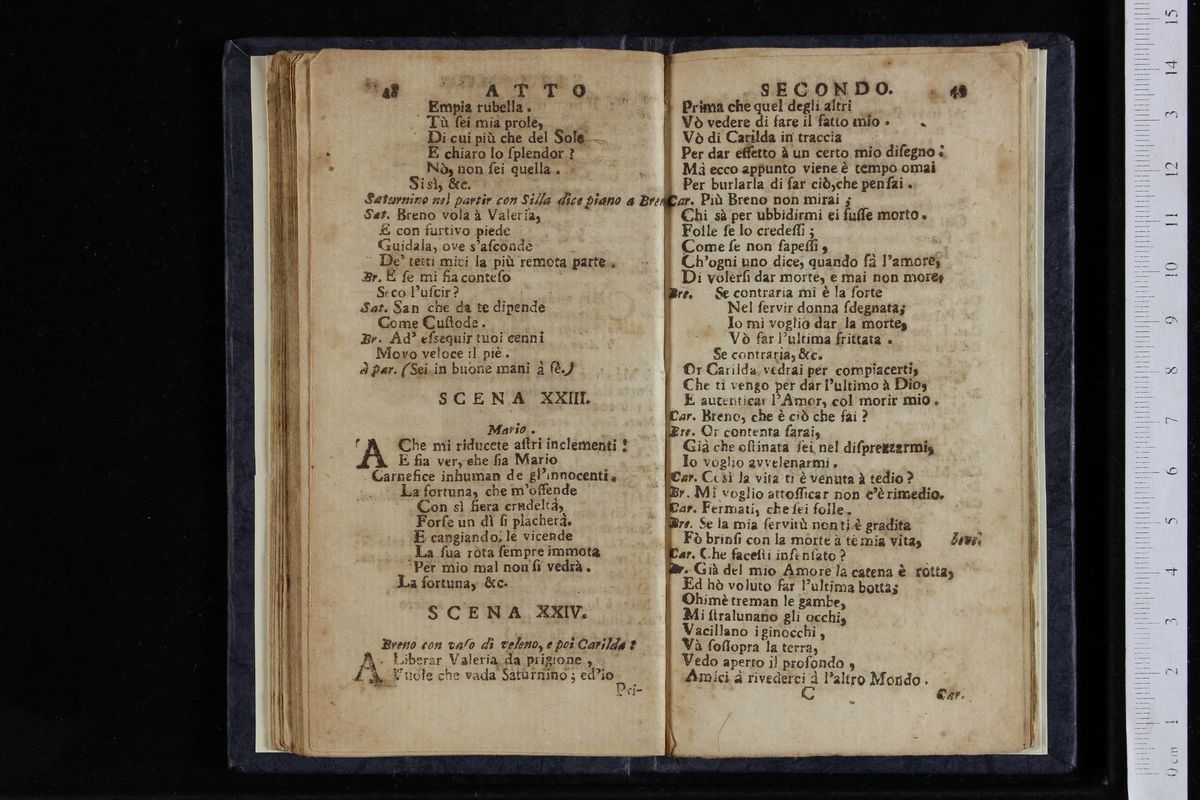 48 ATTO
Empia rubella.
Tù ſei mia prole,
Di cui più che del Sole
E chiaro lo ſplendor?
Nò, non ſei quella.
Sisì, &c.
Saturnino nel partir con Silla dice piano a Bren
Sat. Breno vola à Valeria,
E con furtivo piede
Guidala, ove s'aſconde
De' tetti miei la più remota parte.
Br. E ſe mi ſia conteſo
Seco l'uſcir?
Sat. San che da te dipende
Come Cuſtode.
Br. Ad' eſsequir tuoi cenni
Movo veloce il piè.
à par. (Sei in buone mani à fè.)
SCENA XXIII.
Mario.
A Che mi riducete aſtri inclementi!
E ſia ver, che ſia Mario
Carnefice inhuman de gl'innocenti.
La fortuna, che m'offende
Con sì fiera crudeltà,
Forſe un dì ſi placherà.
E cangiando le vicende
La ſua rota ſempre immota
Per mio mal non ſi vedrà.
La fortuna, &c.
SCENA XXIV.
Breno con vaſo di veleno, e poi Carilda:
A Liberar Valeria da prigione,
Vuole che vada Saturnino; ed'io
Pri-
SECONDO. 49
Prima che quel degli aſtri
Vò vedere di fare il fatto mio.
Vò di Carilda in traccia
Per dar effetto à un certo mio diſegno:
Mà ecco appunto viene è tempo omai
Per burlarla di far ciò, che penſai.
Car. Più Breno non mirai;
Chi sà per ubbidirmi ei fuſſe morto.
Folle ſe lo credeſſi;
Come ſe non ſapeſſi,
Ch'ogni uno dice, quando fà l'amore,
Di volerſi dar morte, e mai non more,
Bre. Se contraria mi è la ſorte
Nel ſervir donna ſdegnata;
Io mi voglio dar la morte,
Vò far l'ultima frittata.
Se contraria, &c.
Or Carilda vedrai per compiacerti,
Che ti vengo per dar l'ultimo à Dio,
E autenticar l'Amor, col morir mio.
Car. Breno, che è ciò che fai?
Bre. Or contenta ſarai,
Già che oſtinata ſei nel diſprezzarmi,
Io voglio avvelenarmi.
Car. Così la vita ti è venuta à tedio?
Br. Mi voglio attoſſicar non c'è rimedio.
Car. Fermati, che ſei folle.
Bre. Se la mia ſervitù non ti è gradita
Fò brinſi con la morte à tè mia vita, beve.
Car. Che faceſti inſenſato?
Br. Già del mio Amore la catena è rotta,
Ed hò voluto far l'ultima botta;
Ohimè treman le gambe,
Mi ſtralunano gli occhi,
Vacillano i ginocchi,
Và ſoſſopra la terra,
Vedo aperto il profondo,
Amici à rivederci à l'altro Mondo.
C Car.